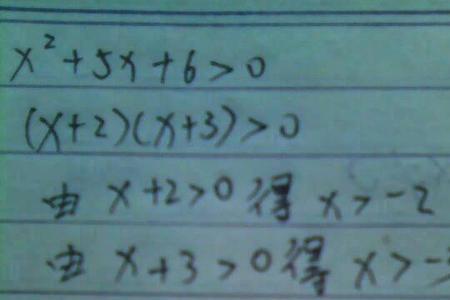 x²+5x+6>0
(x+2)(x+3)>0
由 x+2>0 得 x>-2
由 x+3>0 得 x>-